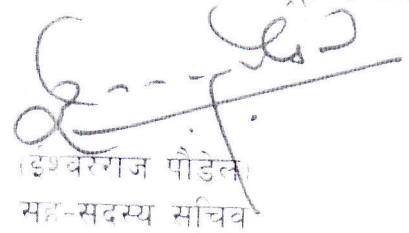 (ईश्वरराज पौडेल)
सह-सदस्य सचिव